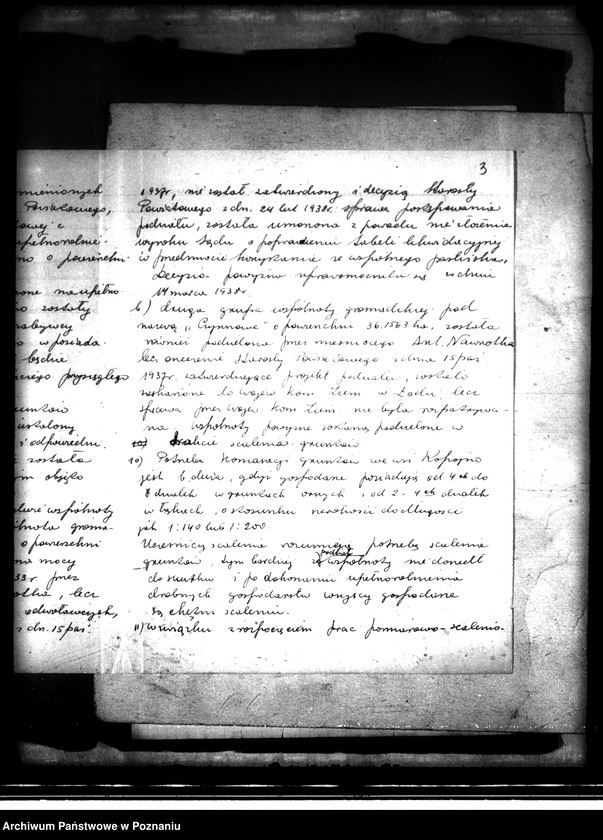 3
mienionych
Powiatowego,
o powierzchni
zostały
nabywcy
w posiada-
będzie
przysięgłego
gruntów
odpowiedni-
została
wspólnoty
groma-
o powierzchni
na mocy
33 r przez
lecz
odwoławczych,
z dn. 15 paź.
1937r, nie został zatwierdzony i decyzją Starosty
Powiatowego z dn. 24 lut 1938r. sprawa postępowania
podziału, została umorzona z powodu nie złożenia
wyroku Sądu o poprawieniu tabeli likwidacyjnej
w przedmiocie korzystania ze wspólnego pastwiska,
Decyzja powyższa uprawomocniła się w dniu
14 marca 1938r.
b) druga grupa wspólnoty gromadzkiej pod
nazwą "Czynszowe" o powierzchni 36.1563 ha, została
również podzielona przez mierniczego Ant. Nawrotka
lecz orzeczenie Starosty Powiatowego z dnia 15 paź
1937r. zatwierdzające projekt podziału, zostało
zaskarżone do Wojew. Kom. Ziem. w Łodzi, lecz
sprawa przez Wojew. Kom. Ziem. nie była rozpatrywa-
na wspólnoty powyższe zostaną podzielone w
trakcie scalenia gruntów
10) Potrzeba komasacji gruntów we wsi Kopojno
jest b. duża, gdyż gospodarze posiadają od 4ch do
8 działek w gruntach ornych, i od 2-4ch działek
w łąkach, o stosunku szerokości do długości
jak 1:140 lub 1:200.
Uczestnicy scalenia rozumieją potrzebę scalenia
gruntów, tym bardziej iż podział wspólnoty nie doszedł
do skutku i po dokonaniu upełnorolnienia
drobnych gospodarstw wszyscy gospodarze
są chętni scaleniu.
11) W związku z rozpoczęciem prac pomiarowo-scalenio-
Archiwum Państwowe w Poznaniu